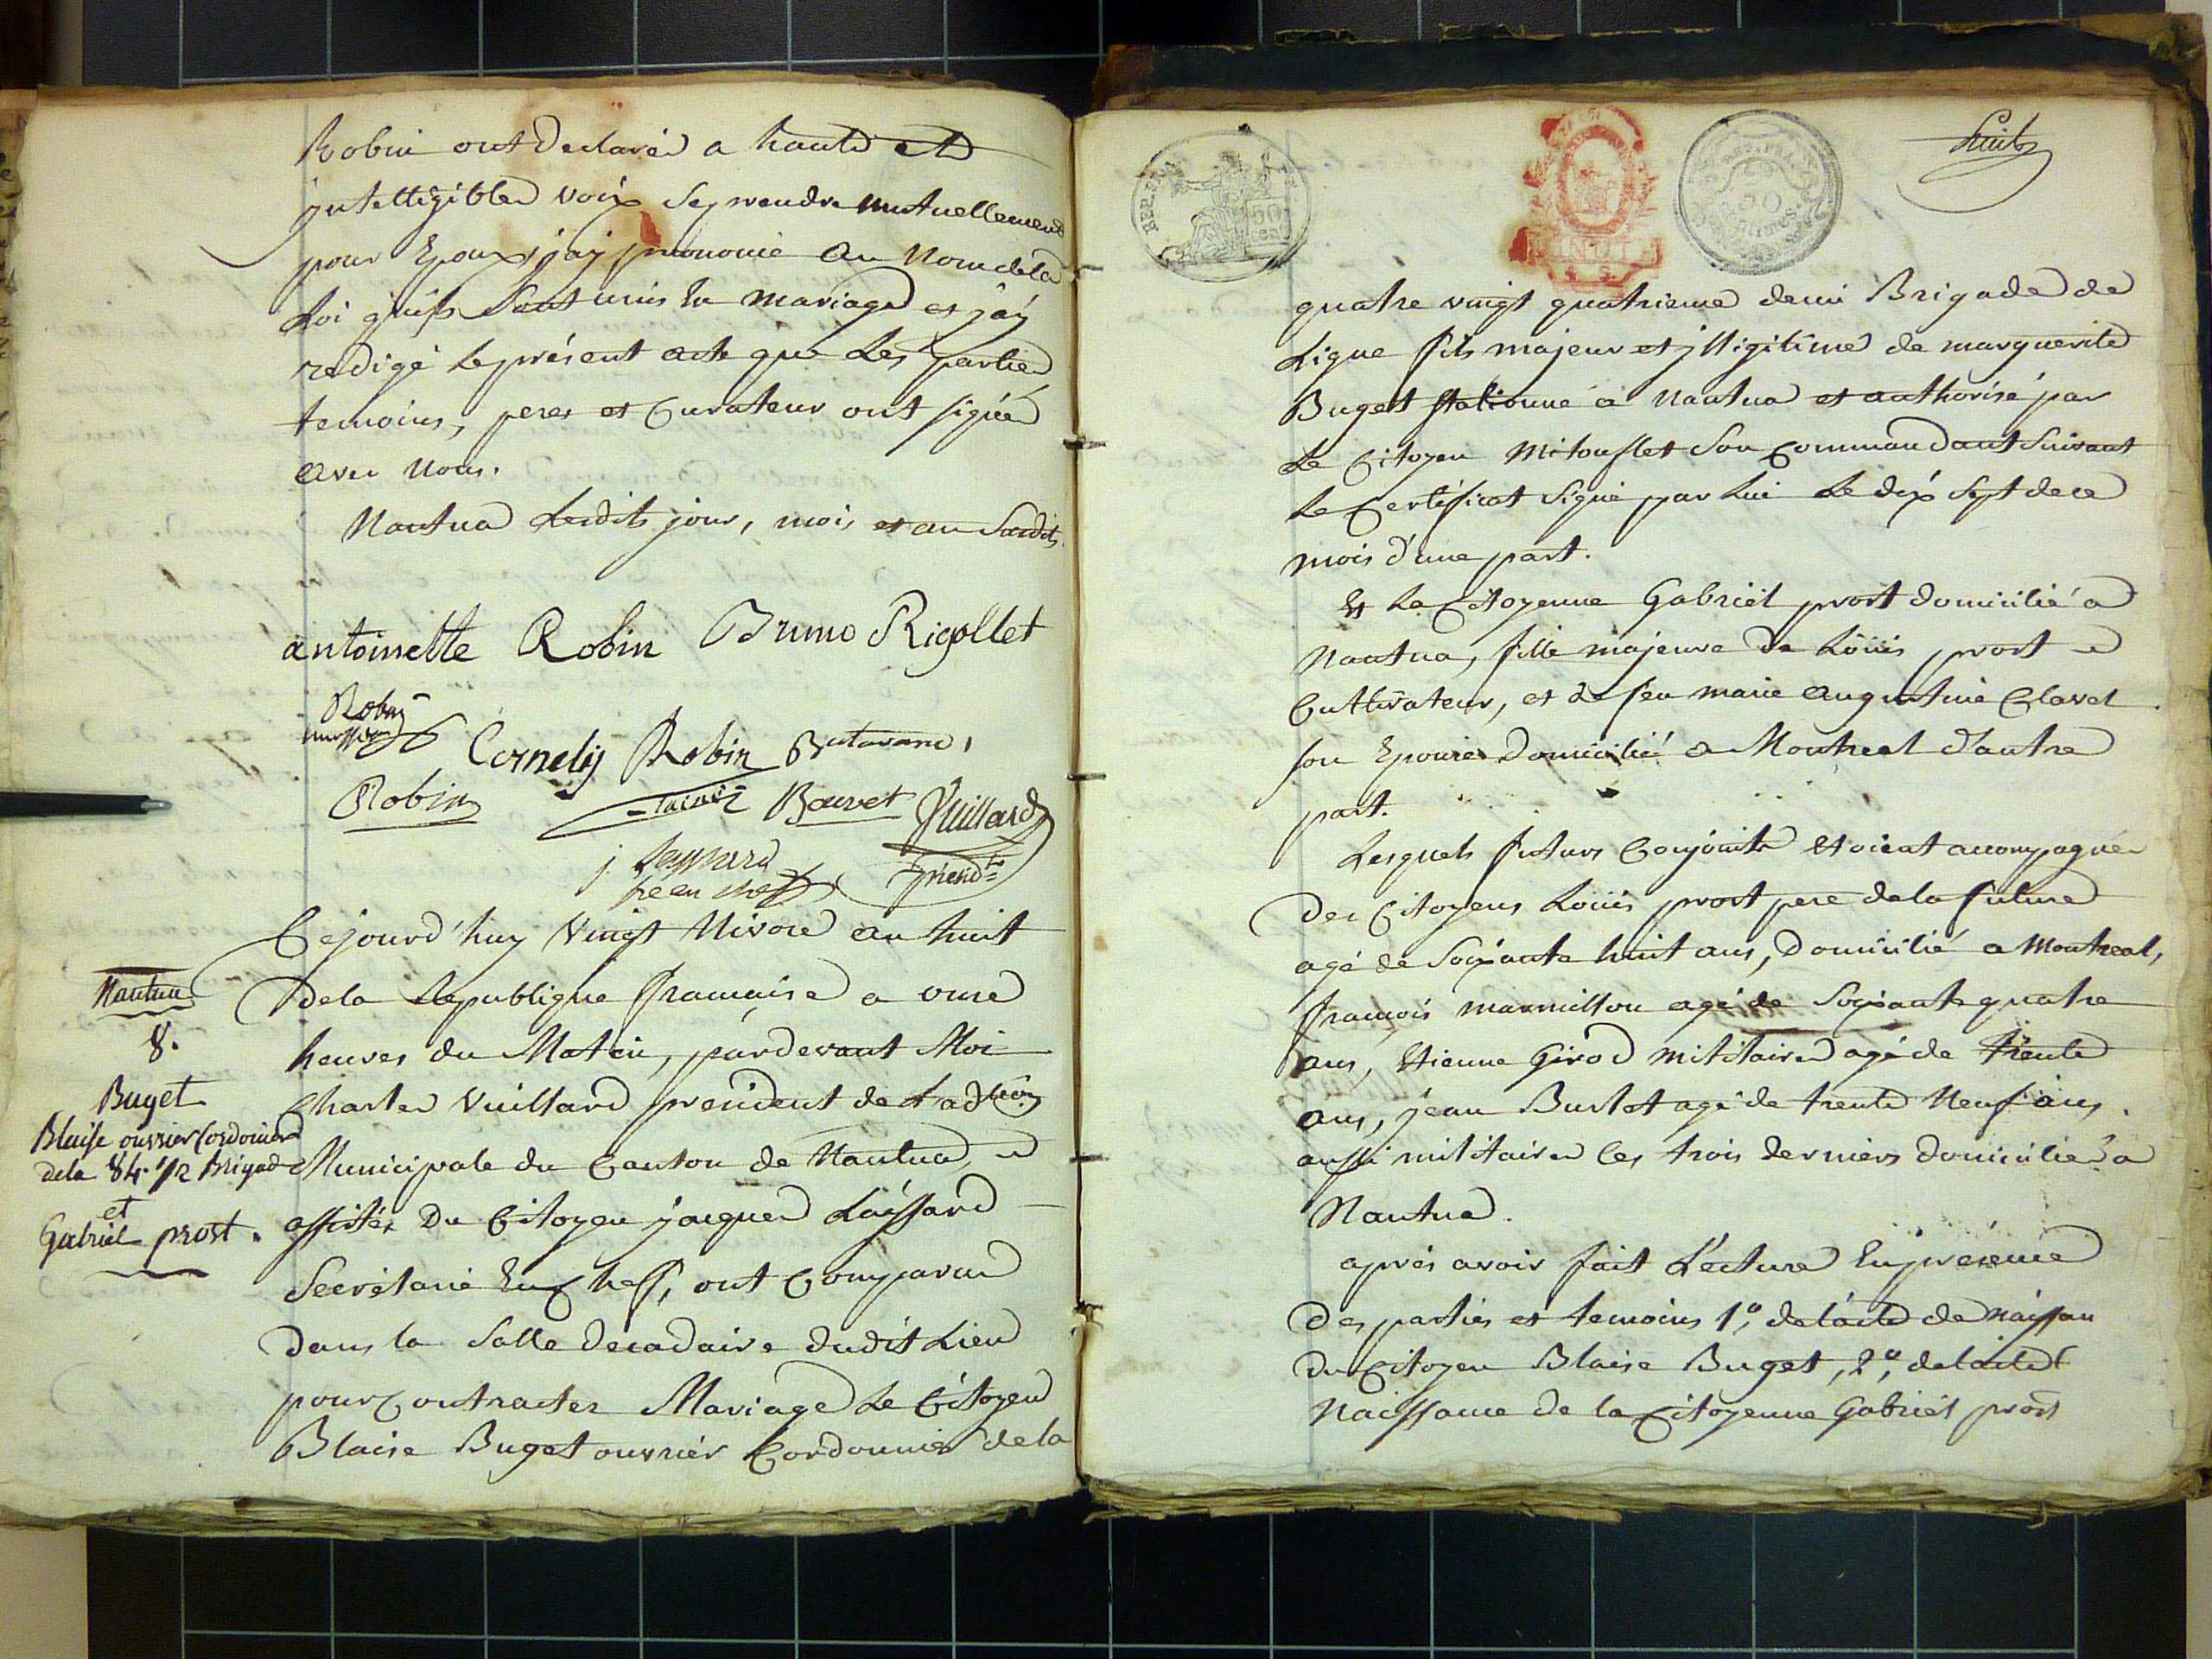 Robin ont declaré a haute et
jntelligible voix se prendre mutuellement
pour Epoux, j'ay prononcé au Nom de la
Loi qu'ils sont unis En mariage et j'ay
redigé le présent acte que Les parties
temoins, peres et Curateur ont signée
avec Nous.
Nantua Lesdits jour, mois et an Susdits.
antoinette Robin Bruno Rigollet
Robin
Cornelij Robin Butavand,
Robin Bouvet Vuillard
j. Laissard presid.te
Cejourd'huy Vingt Nivose an huit
Nantua
8.
Buget
Blaise ouvrier Cordonier
dela 84. 1/2 Brigade
et
Gabriel prost.
Dela Republique française a onze
heures du Matin, pardevant Moi
Charles Vuillard president de L'ad.on
Municipale du Canton de Nantua
assisté, Du Citoyen jacques Laissard
Secrétaire En chef, ont Comparud
Dans la Salle decadaire dudit Lieu
pour Contracter Mariage Le Citoyen
Blaise Buget ouvrier Cordonnier de la
REP. FRA. 50 cent
50 centimes
huit
quatre vingt quatrieme demi Brigade de
Ligne fils majeur et jlligitime de marguerite
Buget stationné à Nantua et authorisé par
Le Citoyen Mitouflet Son Commandant Suivant
Le Certificat signé par Lui Le dix sept de ce
mois d'une part.
Et La Citoyenne Gabriel prost domicilié a
Nantua, fille majeure de Loüis prost
Cultivateur, et de feu marie augustine Clavel
son Epouse Domicilié a Montreal d'autre
part.
Lesquels futurs Conjoints Etoient accompagnés
Des Citoyens Loüis prost pere de la future
agé de Soixante huit ans, Domicilié a Montreal,
françois marmillon agé de Soixante quatre
ans, Etienne Girod militaire agé de trente
ans, jean Burlet agé de trente Neuf ans,
aussi militaire les trois derniers domicilié a
Nantua.
après avoir fait Lecture En presence
Des parties et temoins 1°, de l'acte de naissan
du Citoyen Blaise Buget, 2°, de l'acte d
Naissance de la Citoyenne Gabriel prost